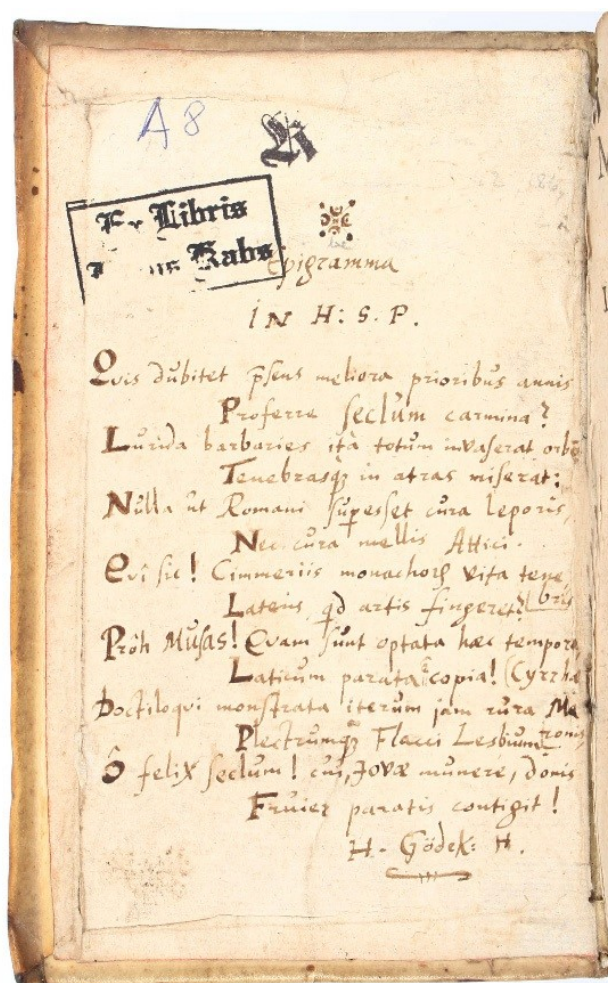 A 8
R
Ex Libris
Rabs
Epigramma
IN H: S. P.
Qvis dubitet p̄sens meliora prioribus annis
Proferre seclum carmina?
Lurida barbaries ità totum invaserat orbē
Tenebrasq; in atras miserat:
Nulla ut Romani supesset cura leporis,
Nec cura mellis Attici.
Qvî sic! Cimmeriis monachorꝝ vita tene,
Latens qd artis fingeret? bris
Prôh Musas! Qvam sunt optata hæc tempora
Laticum parata copia! (Cyrrhæ
Doctiloqvi monstrata iterum jam rura Ma
Plectrumq; Flacci Lesbium ronis,
Ô felix seclum! cui, Jovæ munere, donis
Fruier paratis contigit!
H. Gödek: H.